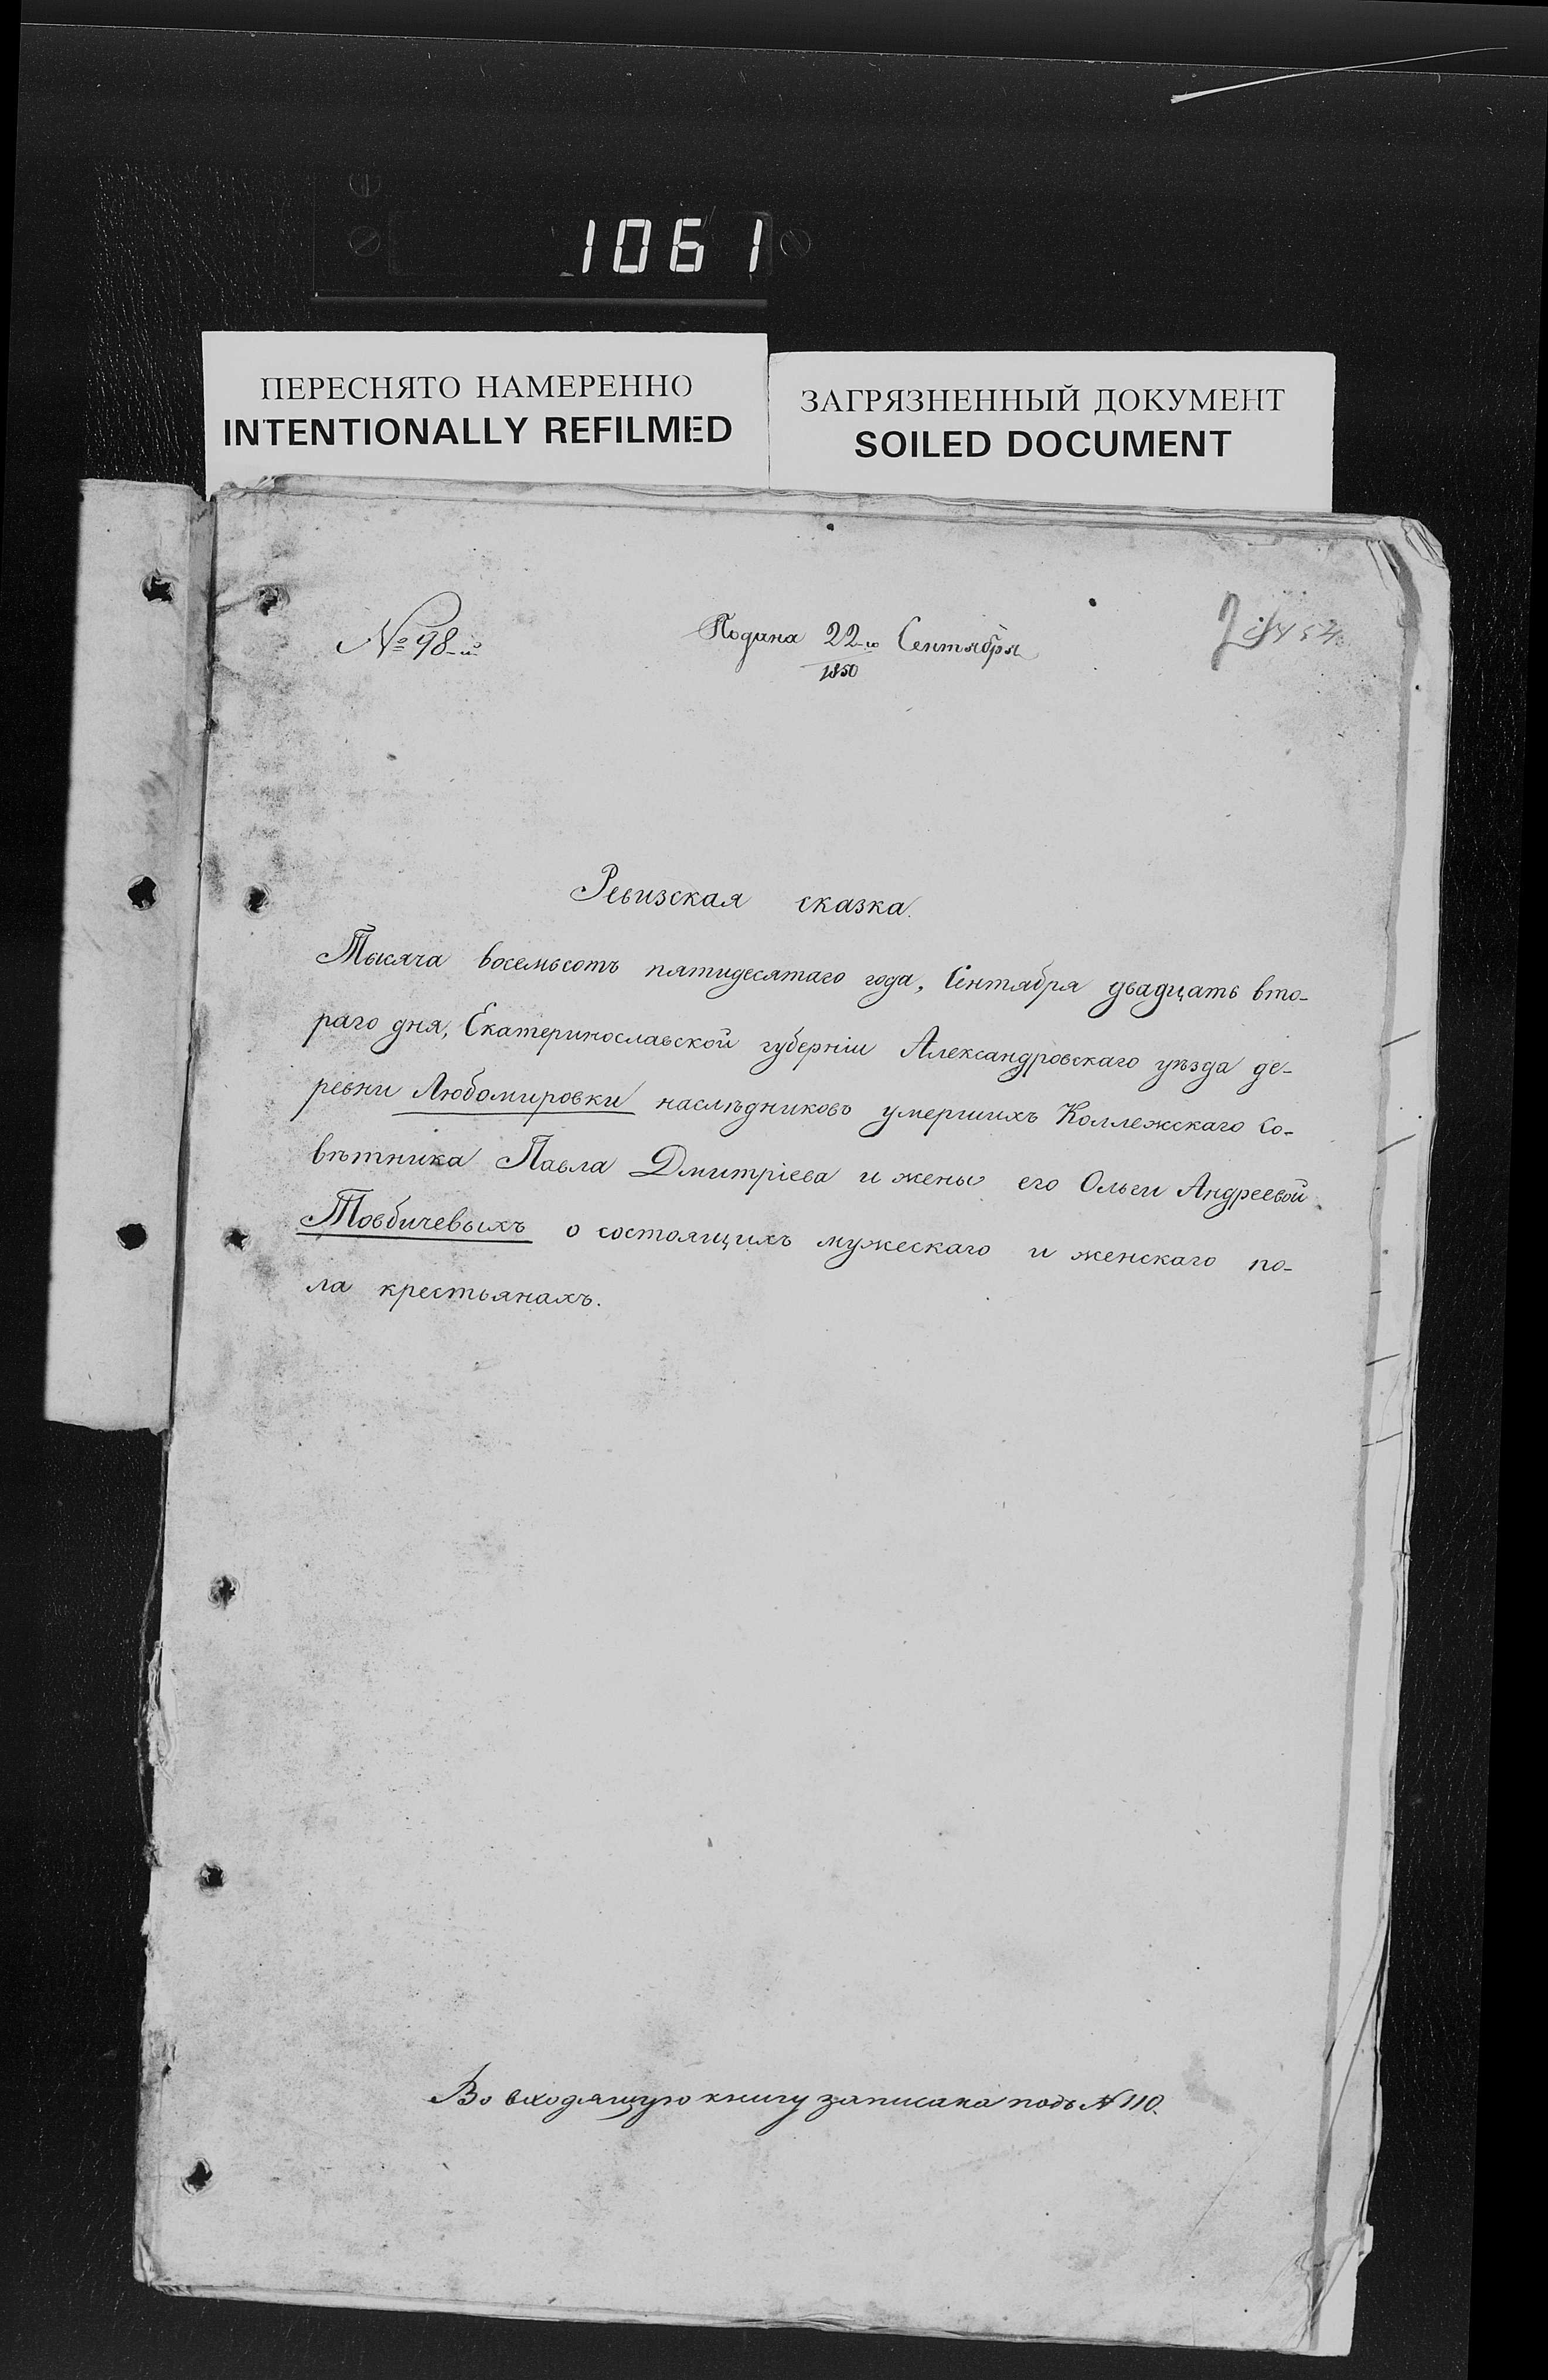 1061
ПЕРЕСНЯТО НАМЕРЕННО
INTENTIONALLY REFILMED
ЗАГРЯЗНЕННЫЙ ДОКУМЕНТ
SOILED DOCUMENT
№ 98-й
Подана 22-го Сентября
1850
Ревизская сказка.
Тысяча восемьсотъ пятидесятаго года, Сентября двадцать вто-
раго дня, Екатеринославской губерніи Александровскаго уѣзда де-
ревни Любомировки наслѣдниковъ умершихъ Коллежскаго Со-
вѣтника Павла Дмитріева и жены его Ольги Андреевой
Товбичевыхъ о состоящихъ мужескаго и женскаго по-
ла крестьянахъ.
Во входящую книгу записана подъ № 110.